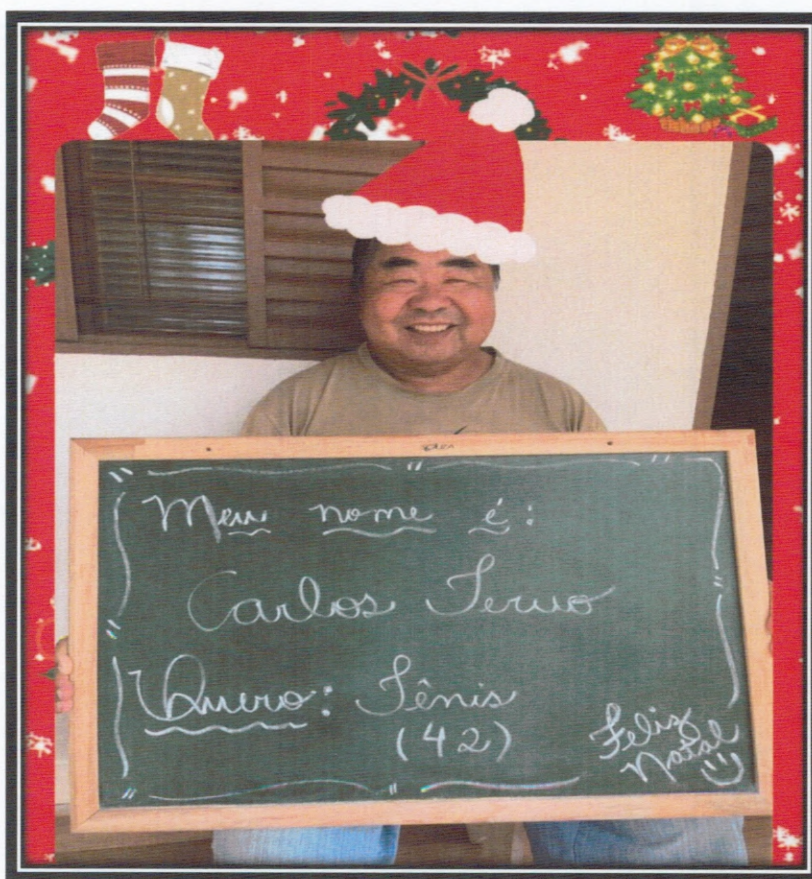 Meu nome é:
Carlos Teruo
Quero: Tênis
(42)
Feliz
Natal